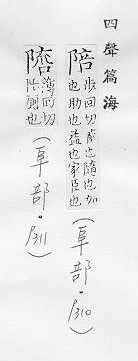 四聲篇海
陪 步回切也隨也加
也助也益也家臣也
(阜部·P310)
回切
也
(阜部·P311)